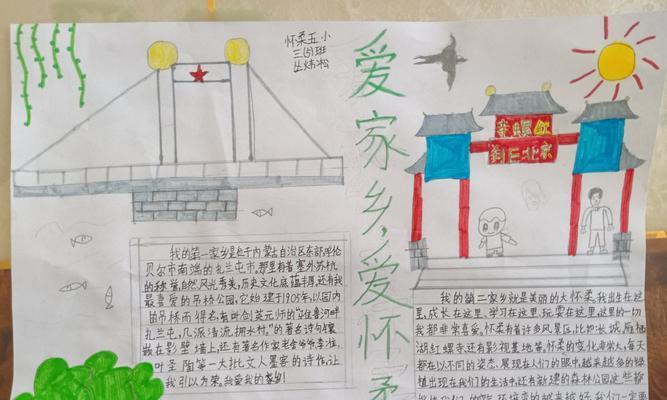 怀柔五小
三(5)班
爱家乡,爱怀柔
红螺寺
北京巨刹
我的第一家乡是处于内蒙古自治区东部呼伦
贝尔市南端的扎兰屯市。那里有着塞外苏杭
的称誉,自然风光秀美,历史文化底蕴丰厚,还有我
最喜爱的吊桥公园,它始建于1905年,以园内
由吊桥而得名,
扎兰屯,几派清流拥水村,"的著名诗句镶
嵌在影壁墙上,还有著名作家老舍
叶圣陶等一大批文人墨客的诗作,让
我引以为荣。我爱我的家乡!
我的第二家乡就是美丽的大怀柔。我出生在这
里,成长在这里、学习在这里、玩耍在这里,这里的一切
我都非常喜爱。怀柔有着许多风景区,比如长城、雁栖
湖、红螺寺,还有影视基地等。怀柔的变化非常大,每天
都在以不同的姿态,展现在人们的眼中,越来越多的绿
植出现在我们的生活中,还有新建的森林公园